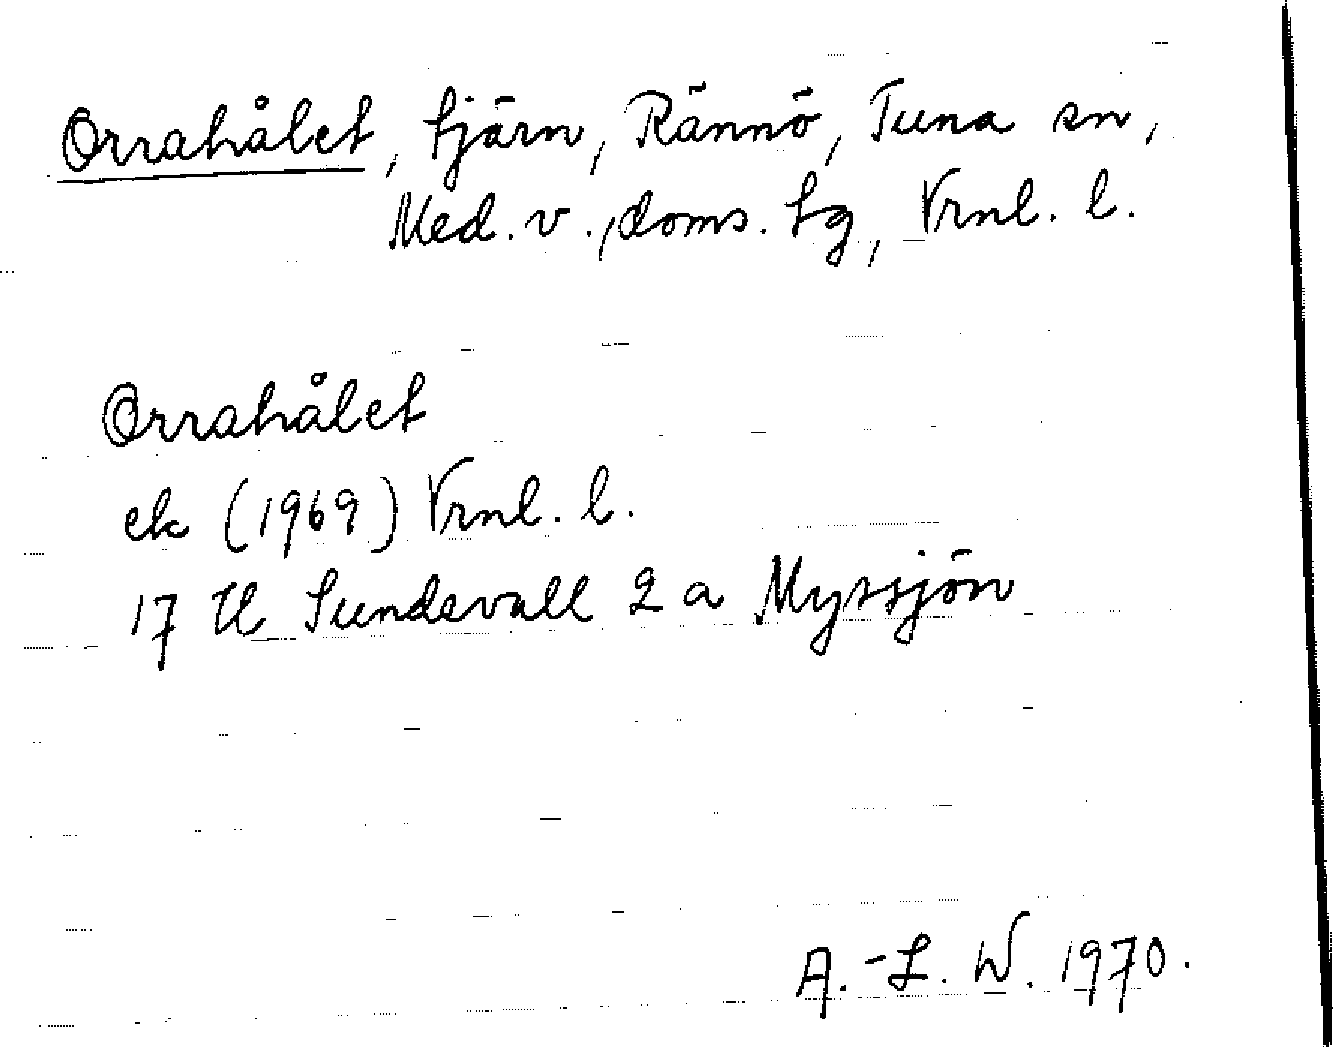 Orrahålet, tjärn, Rännö, Tuna sn,
Med. v., doms. tg, Vrnl. l.
Orrahålet
ek (1969) Vrnl. l.
17 H Sundsvall 2 a Myssjön
A.-L. W. 1970.